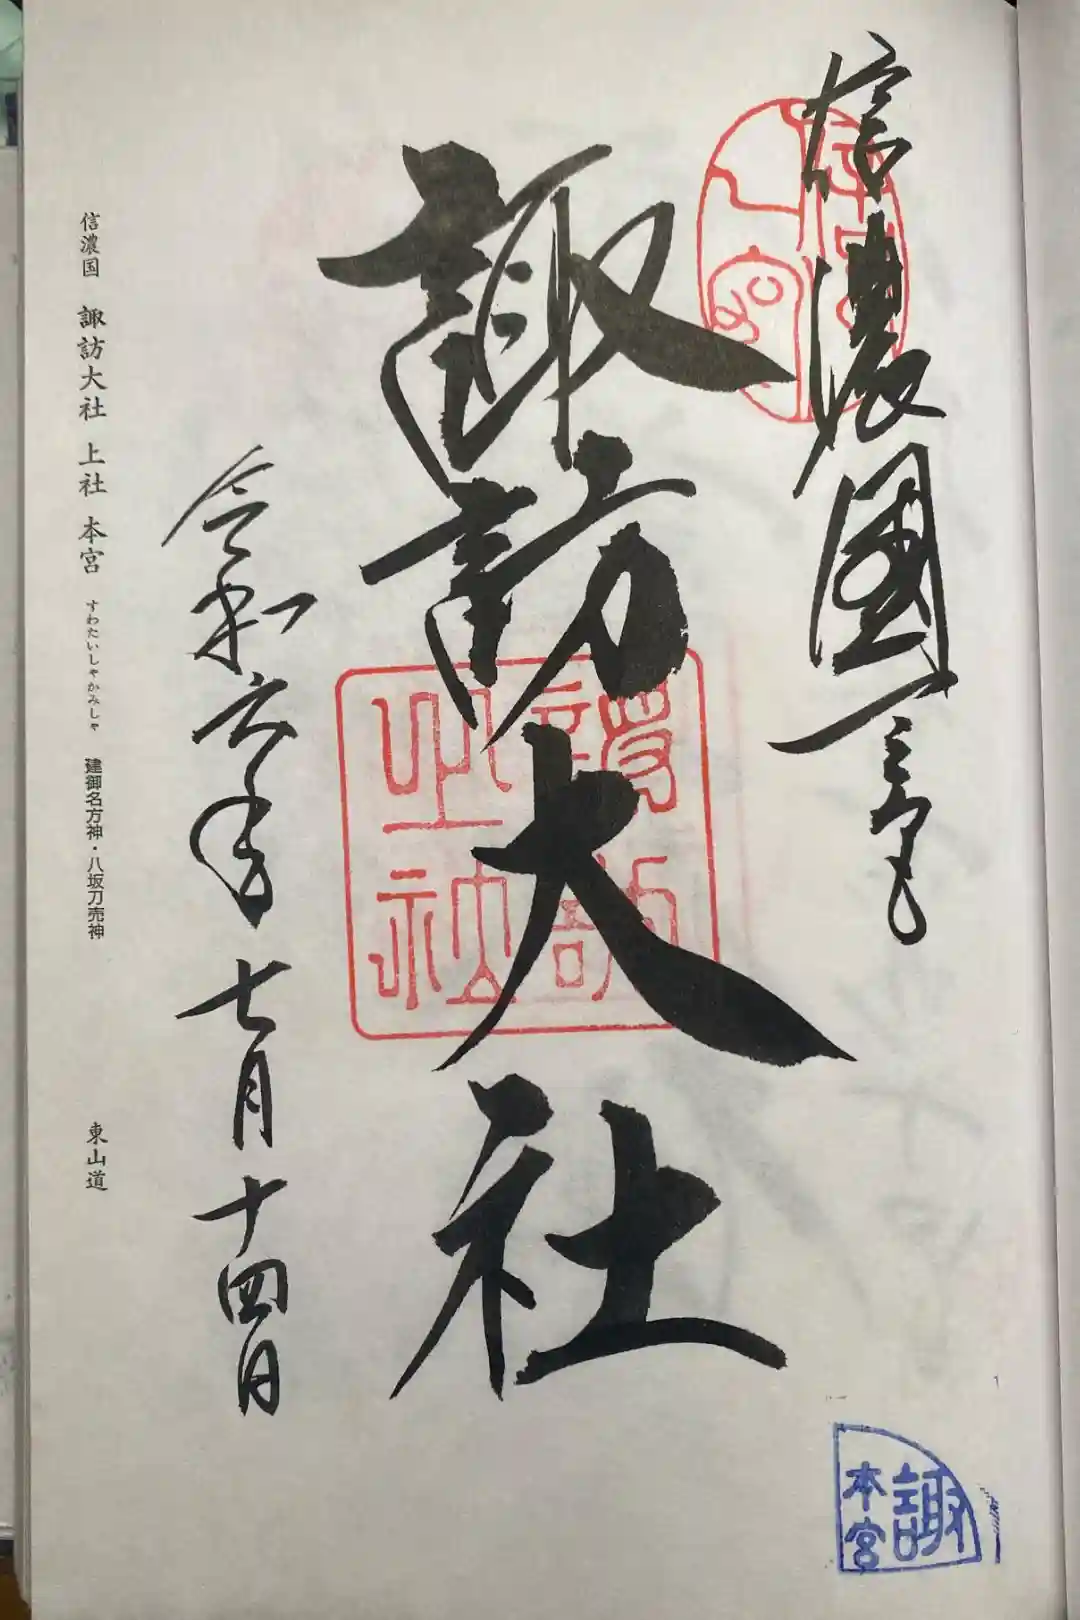 信濃國一之宮
諏訪大社
令和六年七月十四日
信濃国 諏訪大社 上社 本宮 すわたいしゃかみしゃ 建御名方神・八坂刀売神 東山道
諏訪
之社
諏
本宮
1